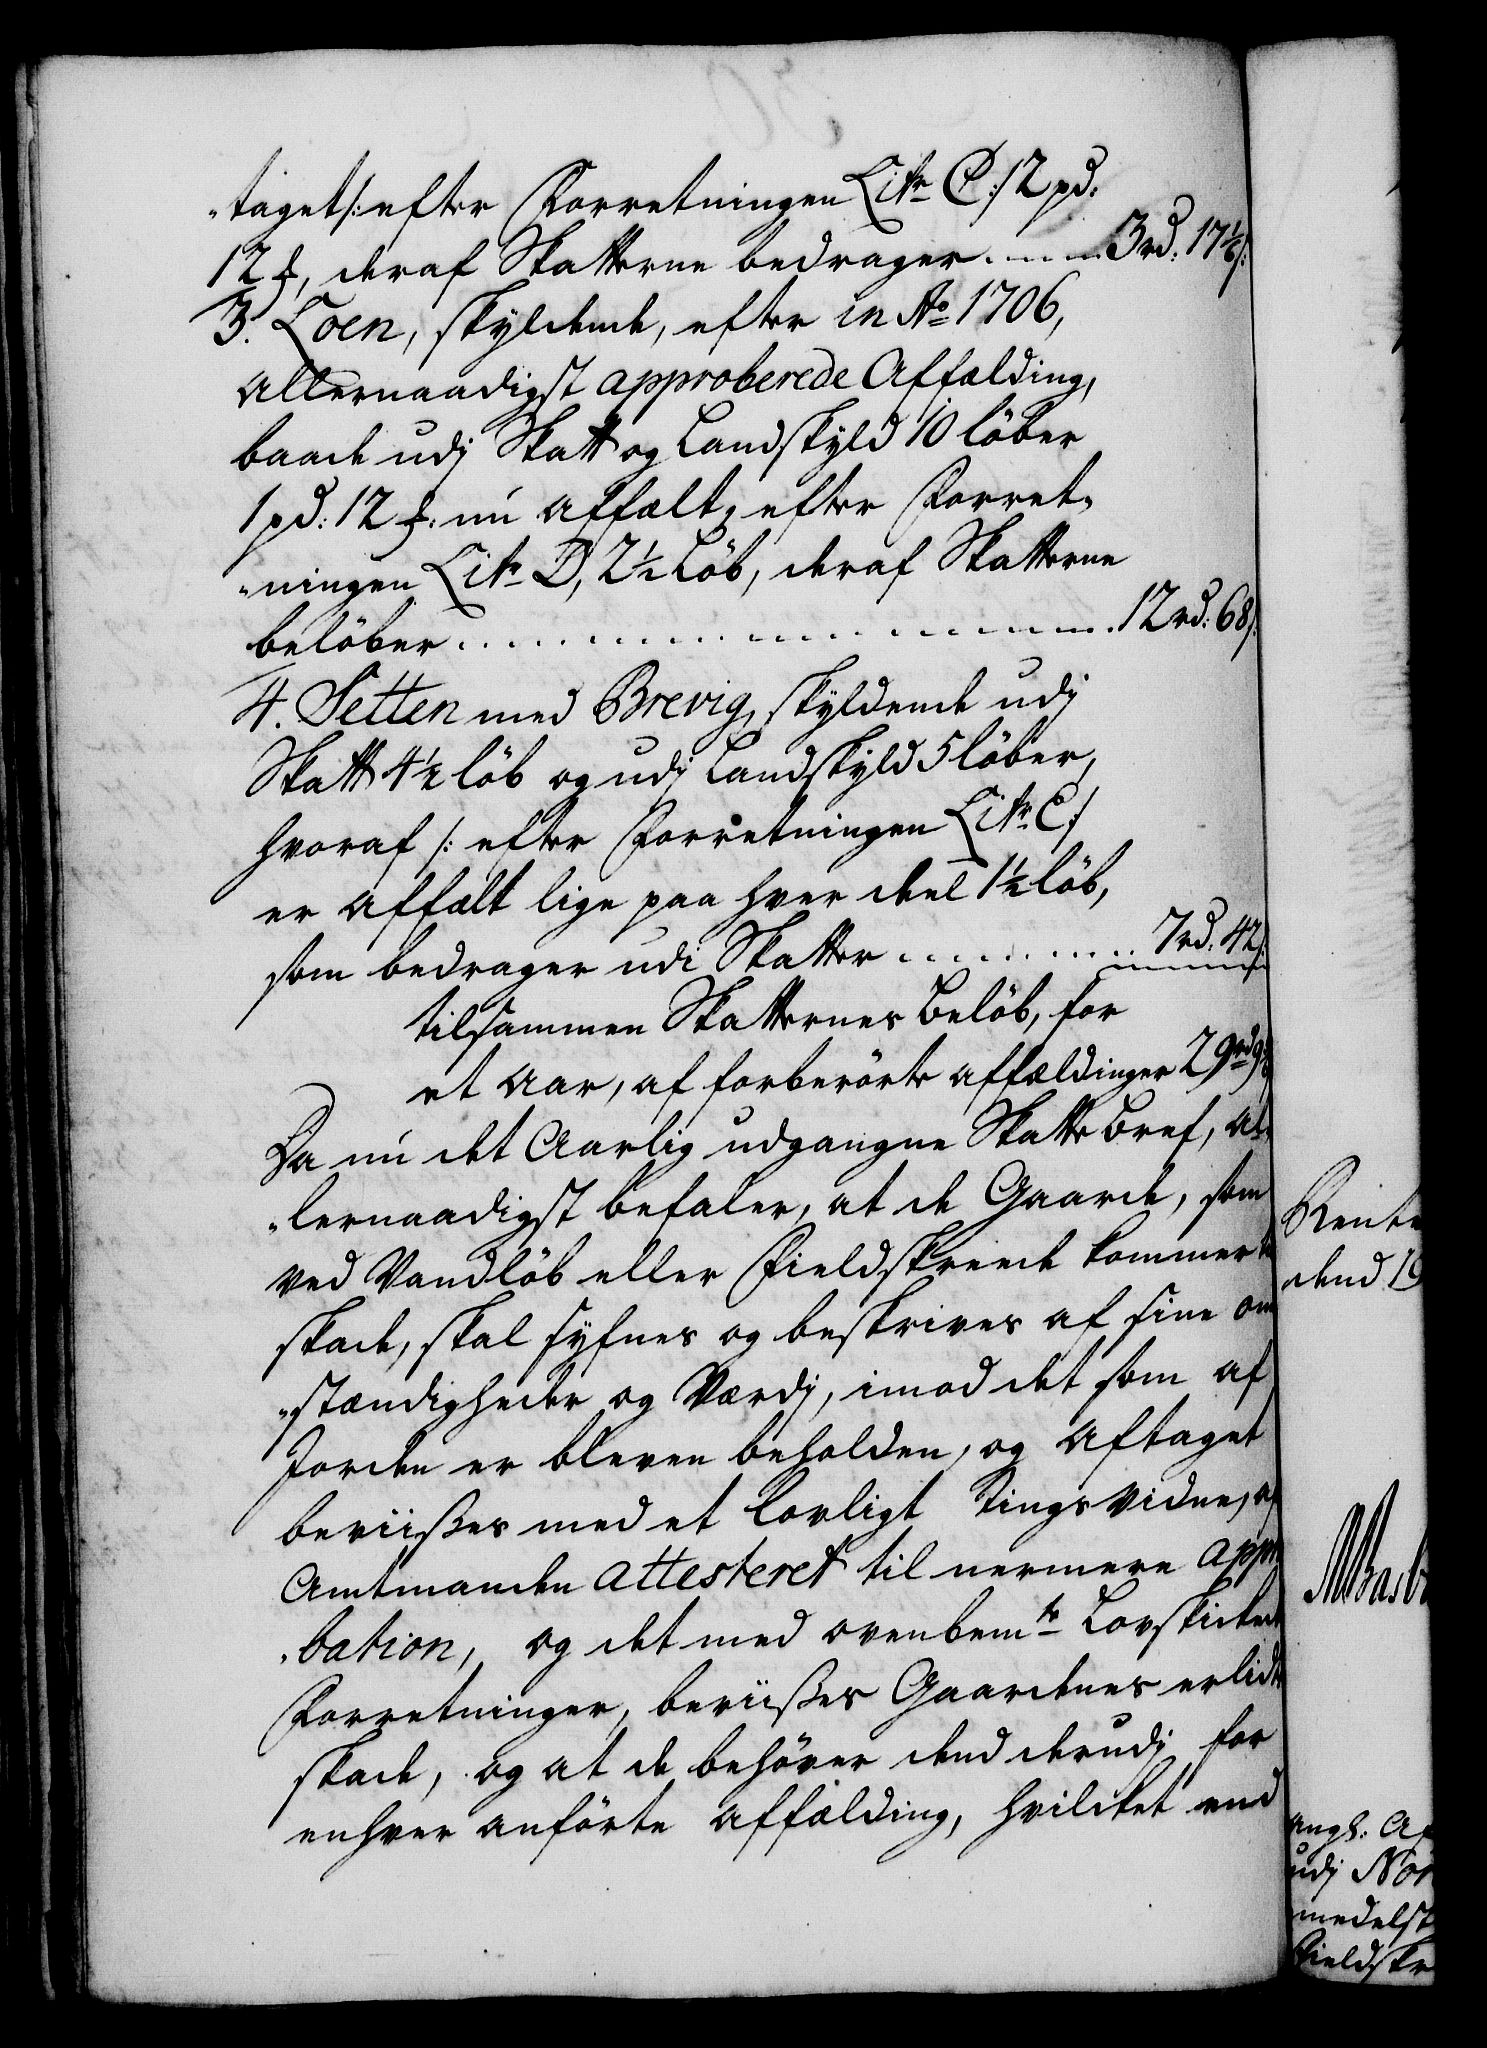 "taget /: efter Forretningen Litr C :/ 2 pd:
12 ℔, deraf Skatterne bedrager ..... 3 rd: 17½ s:
3. Loen, skyldende, efter in Ao 1706,
allernaadigst approberede Affælding,
baade udj Skatt og Landskyld 10 løber
1 pd: 12 ℔: nu affælt, efter Forret-
"ningen Litr D, 2½ Løb, deraf Skatterne
beløber ..... 12 rd: 68 s:
4. Setten med Brevig, skyldende udj
Skatt 4½ løb og udj Landskyld 5 løber,
hvoraf /: efter Forretningen Litr C :/
er affælt lige paa hver deel 1½ løb,
som bedrager udi Skatter ..... 7 rd. 42 s:
tilsammen Skatternes Beløb, for
et Aar, af forberørte affældinger 29 rd 9
Da nu det Aarlig udgangne Skatte Bref, al-
"lernaadigst befaler, at de Gaarde, som
ved Vandløb eller Fieldskreede kommer til
skade, skal syfnes og beskrives af sine om
"stændigheder og Værdj, imod det som af
Jorden er bleven beholden, og aftaget
beviisses med et lovligt Tings Vidne, af
Amtmanden attesteret til nermere appro
"bation, og det med ovenbemte Lovskickede
Forretninger, beviisses Gaardenes erlidte
skade, og at de behøver dend derudj for
enhver anførte affælding, hvilcket end
Rente
dend 19
angl: Af
udj Nor
medelst
Fieldskr